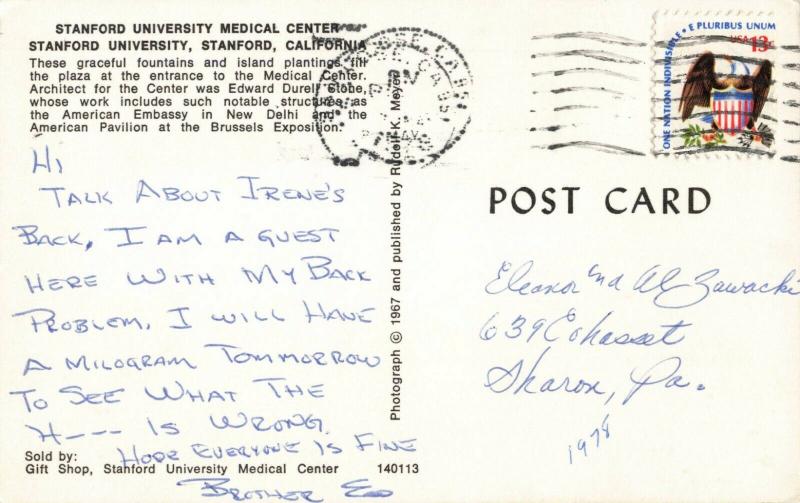 STANFORD UNIVERSITY MEDICAL CENTER
STANFORD UNIVERSITY, STANFORD, CALIFORNIA
These graceful fountains and island plantings fill
the plaza at the entrance to the Medical Center.
Architect for the Center was Edward Durell Stone,
whose work includes such notable structures as
the American Embassy in New Delhi and the
American Pavilion at the Brussels Exposition.
HI
TALK ABOUT IRENE'S
BACK, I AM A GUEST
HERE WITH MY BACK
PROBLEM. I WILL HAVE
A MILOGRAM TOMMORROW
TO SEE WHAT THE
H--- IS WRONG.
HOPE EVERYONE IS FINE
BROTHER ED
Sold by:
Gift Shop, Stanford University Medical Center 140113
Photograph © 1967 and published by Rudolf K. Meyer
ONE NATION INDIVISIBLE • E PLURIBUS UNUM
USA 13c
POST CARD
Eleanor and Al Zawacki
639 Cohasset
Sharon, Pa.
1978